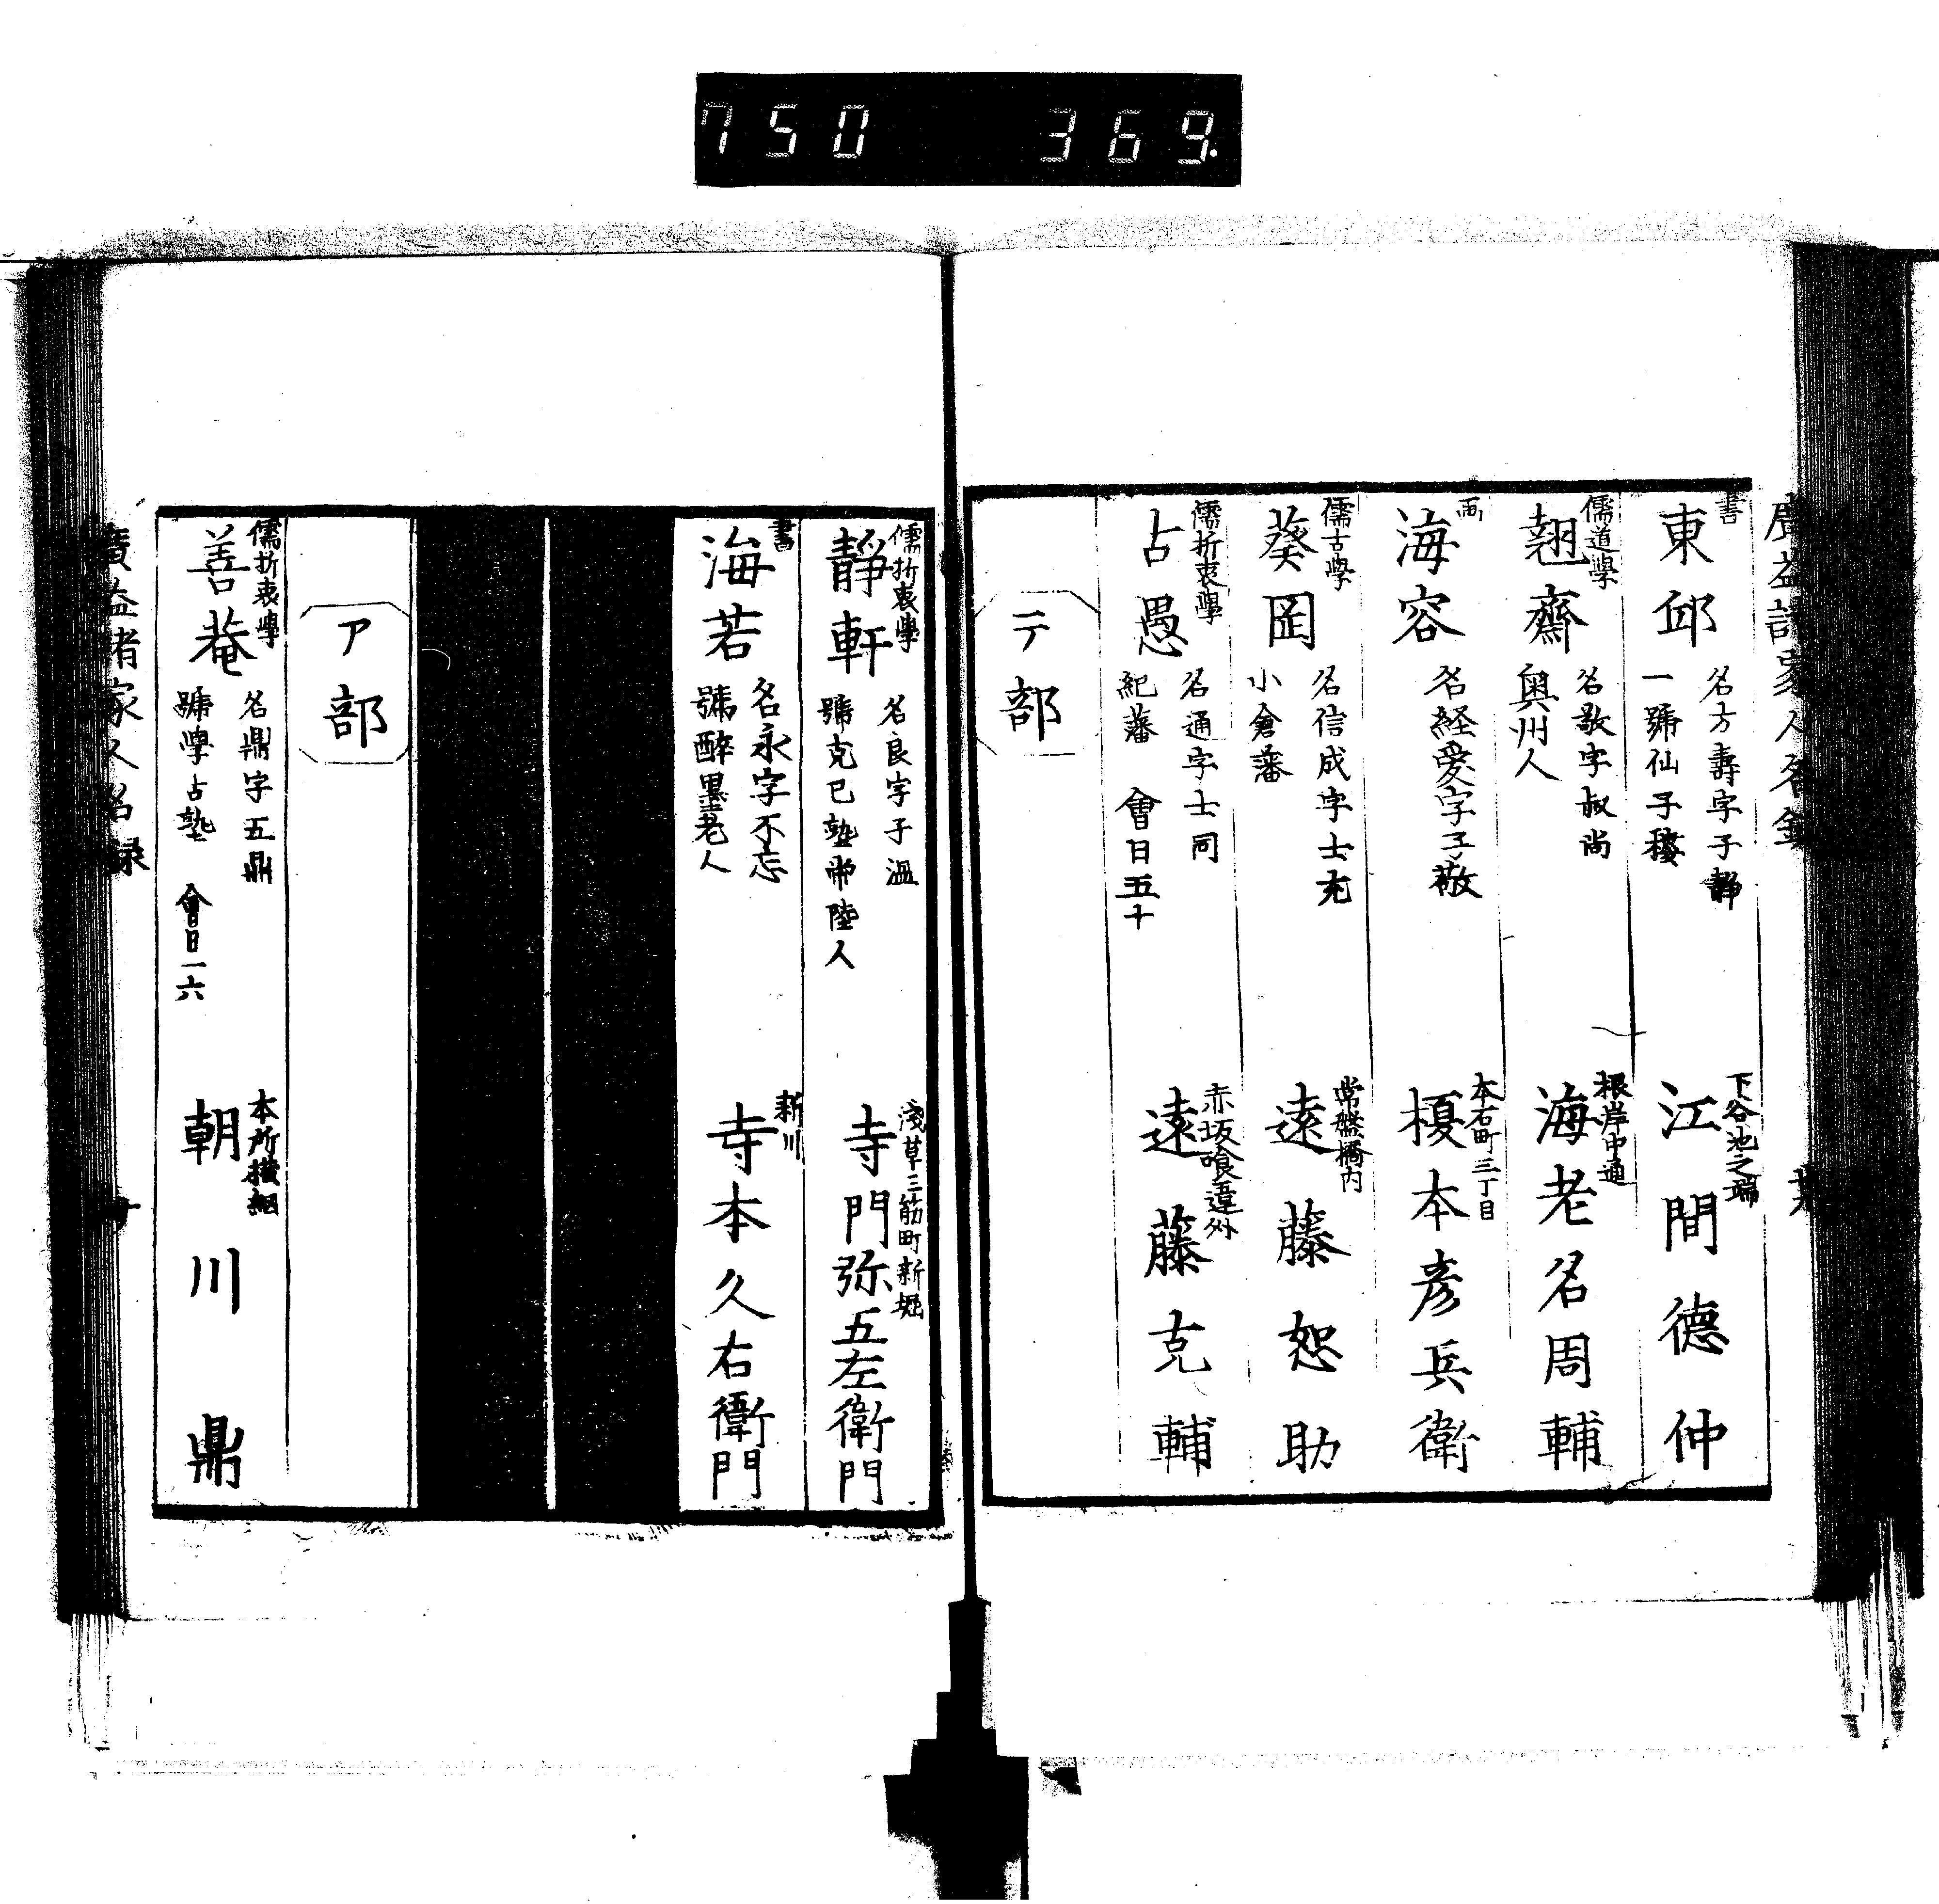 750 369.
書
東邱
名方壽字子靜
一號仙子
下谷池之端
江間德仲
儒道學
翹齋
名敬字叔尚
奥州人
根岸中通
海老名周輔
画
海容
名経愛字子敬
本石町三丁目
榎本彦兵衛
儒古學
葵岡
名信成字士充
小倉藩
常盤橋内
遠藤恕助
儒折衷學
占愚
名通字士同
紀藩 會日五十
赤坂喰違外
遠藤克輔
テ部
儒折衷學
靜軒
名良字子溫
號克己塾常陸人
淺草三筋町新堀
寺門弥五左衛門
書
海若
名永字不忘
號醉墨老人
新川
寺本久右衛門
ア部
儒折衷學
善菴
名鼎字五鼎
號學古塾 會日一六
本所横綱
朝川鼎
廣益諸家人名録